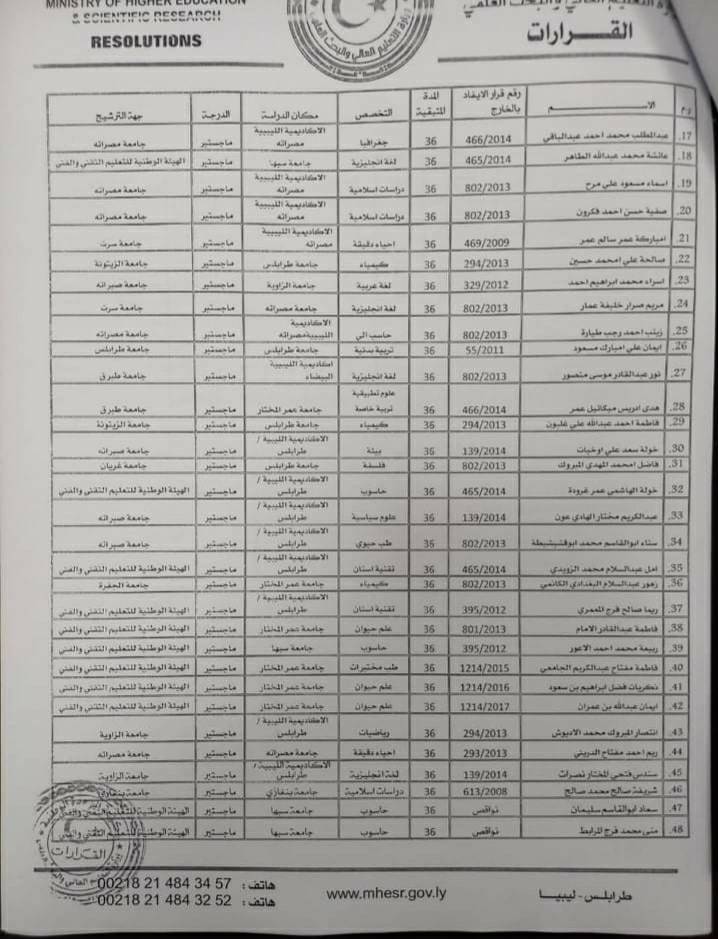 MINISTRY OF HIGHER EDUCATION
& SCIENTIFIC RESEARCH
RESOLUTIONS
وزارة التعليم العالي والبحث العلمي
القـرارات
ر.م | الاســـم | رقم قرار الايفاد بالخارج | المدة المتبقية | التخصص | مكان الدراسة | الدرجة | جهة الترشيح
17. عبدالمطلب محمد احمد عبدالباقي | 466/2014 | 36 | جغرافيا | الاكاديمية الليبية مصراته | ماجستير | جامعة مصراته
18. عائشة محمد عبدالله الطاهر | 465/2014 | 36 | لغة انجليزية | جامعة سبها | ماجستير | الهيئة الوطنية للتعليم التقني والفني
19. اسماء مسعود علي مرح | 802/2013 | 36 | دراسات اسلامية | الاكاديمية الليبية مصراته | ماجستير | جامعة مصراته
20. صفية حسن احمد فكرون | 802/2013 | 36 | دراسات اسلامية | الاكاديمية الليبية مصراته | ماجستير | جامعة مصراته
21. امباركة عمر سالم عمر | 469/2009 | 36 | احياء دقيقة | الاكاديمية الليبية مصراته | ماجستير | جامعة سرت
22. صالحة علي امحمد حسين | 294/2013 | 36 | كيمياء | جامعة طرابلس | ماجستير | جامعة الزيتونة
23. اسراء محمد ابراهيم احمد | 329/2012 | 36 | لغة عربية | جامعة الزاوية | ماجستير | جامعة صبراته
24. مريم صرار خليفة عمار | 802/2013 | 36 | لغة انجليزية | جامعة مصراته | ماجستير | جامعة سرت
25. زينب احمد رجب طيارة | 802/2013 | 36 | حاسب الي | الاكاديمية الليبية مصراته | ماجستير | جامعة مصراته
26. ايمان علي امبارك مسعود | 55/2011 | 36 | تربية بدنية | جامعة طرابلس | ماجستير | جامعة طرابلس
27. نور عبدالقادر موسى منصور | 802/2013 | 36 | لغة انجليزية | اكاديمية الليبية البيضاء | ماجستير | جامعة طبرق
28. هدى ادريس ميكائيل عمر | 466/2014 | 36 | علوم تطبيقية تربية خاصة | جامعة عمر المختار | ماجستير | جامعة طبرق
29. فاطمة احمد عبدالله علي غلبون | 294/2013 | 36 | كيمياء | جامعة طرابلس | ماجستير | جامعة الزيتونة
30. خولة سعد علي اوخيات | 139/2014 | 36 | بيئة | الاكاديمية الليبية / طرابلس | ماجستير | جامعة صبراته
31. فاضل امحمد المهدي المبروك | 802/2013 | 36 | فلسفة | جامعة طرابلس | ماجستير | جامعة غريان
32. خولة الهاشمي عمر غرودة | 465/2014 | 36 | حاسوب | الاكاديمية الليبية / طرابلس | ماجستير | الهيئة الوطنية للتعليم التقني والفني
33. عبدالكريم مختار الهادي عون | 139/2014 | 36 | علوم سياسية | الاكاديمية الليبية / طرابلس | ماجستير | جامعة صبراته
34. سناء ابوالقاسم محمد | 802/2013 | 36 | طب حيوي | الاكاديمية الليبية / طرابلس | ماجستير | جامعة صبراته
35. امل عبدالسلام محمد الزويدي | 465/2014 | 36 | تقنية اسنان | الاكاديمية الليبية / طرابلس | ماجستير | الهيئة الوطنية للتعليم التقني والفني
36. زهور عبدالسلام البغدادي الكانمي | 802/2013 | 36 | كيمياء | جامعة عمر المختار | ماجستير | جامعة الجفرة
37. ريما صالح فرج المعمري | 395/2012 | 36 | تقنية اسنان | الاكاديمية الليبية / طرابلس | ماجستير | الهيئة الوطنية للتعليم التقني والفني
38. فاطمة عبدالقادر الامام | 801/2013 | 36 | علم حيوان | جامعة عمر المختار | ماجستير | الهيئة الوطنية للتعليم التقني والفني
39. ربيعة محمد احمد الاعور | 395/2012 | 36 | حاسوب | جامعة سبها | ماجستير | الهيئة الوطنية للتعليم التقني والفني
40. فاطمة مفتاح عبدالكريم الجامعي | 1214/2015 | 36 | طب مختبرات | جامعة عمر المختار | ماجستير | الهيئة الوطنية للتعليم التقني والفني
41. ذكريات فضل ابراهيم بن سعود | 1214/2016 | 36 | علم حيوان | جامعة عمر المختار | ماجستير | الهيئة الوطنية للتعليم التقني والفني
42. ايمان عبدالله بن عمران | 1214/2017 | 36 | علم حيوان | جامعة عمر المختار | ماجستير | الهيئة الوطنية للتعليم التقني والفني
43. انتصار المبروك محمد الاديوش | 294/2013 | 36 | رياضيات | الاكاديمية الليبية / طرابلس | ماجستير | جامعة الزاوية
44. ريم احمد مفتاح الدريني | 293/2013 | 36 | احياء دقيقة | جامعة مصراته | ماجستير | جامعة مصراته
45. سندس فتحي المختار نصرات | 139/2014 | 36 | لغة انجليزية | الاكاديمية الليبية / طرابلس | ماجستير | جامعة الزاوية
46. شريفة صالح محمد صالح | 613/2008 | 36 | دراسات اسلامية | جامعة بنغازي | ماجستير | جامعة بنغازي
47. سعاد ابوالقاسم سليمان | نواقص | 36 | حاسوب | جامعة سبها | ماجستير | الهيئة الوطنية للتعليم التقني والفني
48. منى محمد فرج المرابط | نواقص | 36 | حاسوب | جامعة سبها | ماجستير | الهيئة الوطنية للتعليم التقني والفني
القرارات
طرابلس - ليبيا
www.mhesr.gov.ly
هاتف : 00218 21 484 34 57
هاتف : 00218 21 484 32 52